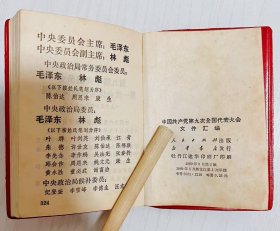 中央委员会主席：毛泽东
中央委员会副主席：林彪
中央政治局常务委员会委员：
毛泽东 林彪
（以下按姓氏笔划为序）
陈伯达 周恩来 康生
中央政治局委员：
毛泽东 林彪
（以下按姓氏笔划为序）
叶群 叶剑英 刘伯承 江青
朱德 许世友 陈伯达 陈锡联
李先念 李作鹏 吴法宪 张春桥
邱会作 周恩来 姚文元 康生
黄永胜 董必武 谢富治
中央政治局候补委员：
纪登奎 李雪峰 李德生 汪东兴
324
中国共产党第九次全国代表大会
文件汇编
人民出版社
新华书店发行
牡丹江造纸印刷厂印刷